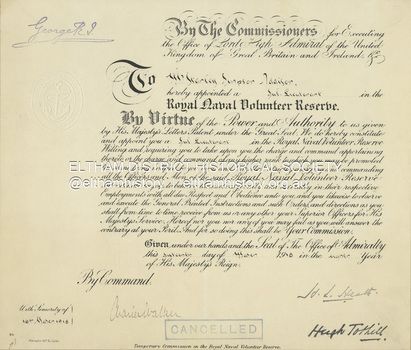 George R.I.
By The Commissioners for Executing
the Office of Lord High Admiral of the United
Kingdom of Great Britain and Ireland &c
To Mr
hereby appointed a Sub Lieutenant in the
Royal Naval Volunteer Reserve.
By Virtue of the Power and Authority to us given
by His Majesty's Letters Patent under the Great Seal, We do hereby constitute
and appoint you a Sub Lieutenant in the Royal Naval Volunteer Reserve
Willing and requiring you to take upon you the charge and command appertaining
ELTHAM DISTRICT HISTORICAL SOCIETY
@elthamhistory elthamhistory.org.au
Employments with all due Respect and Obedience unto you and you likewise to observe
and execute the General Printed Instructions and such Orders and directions as you
shall from time to time receive from us or any other your Superior Officers for His
Majesty's Service. Hereof nor you nor any of you may fail as you will answer the
contrary at your Peril. And for so doing this shall be Your Commission.
Given under our hands and the Seal of The Office of Admiralty
this day of 1918 in the Year
of His Majesty's Reign.
By Command.
With Seniority of
1918
Charles Walker
Hugh Tothill
CANCELLED
Temporary Commission in the Royal Naval Volunteer Reserve.